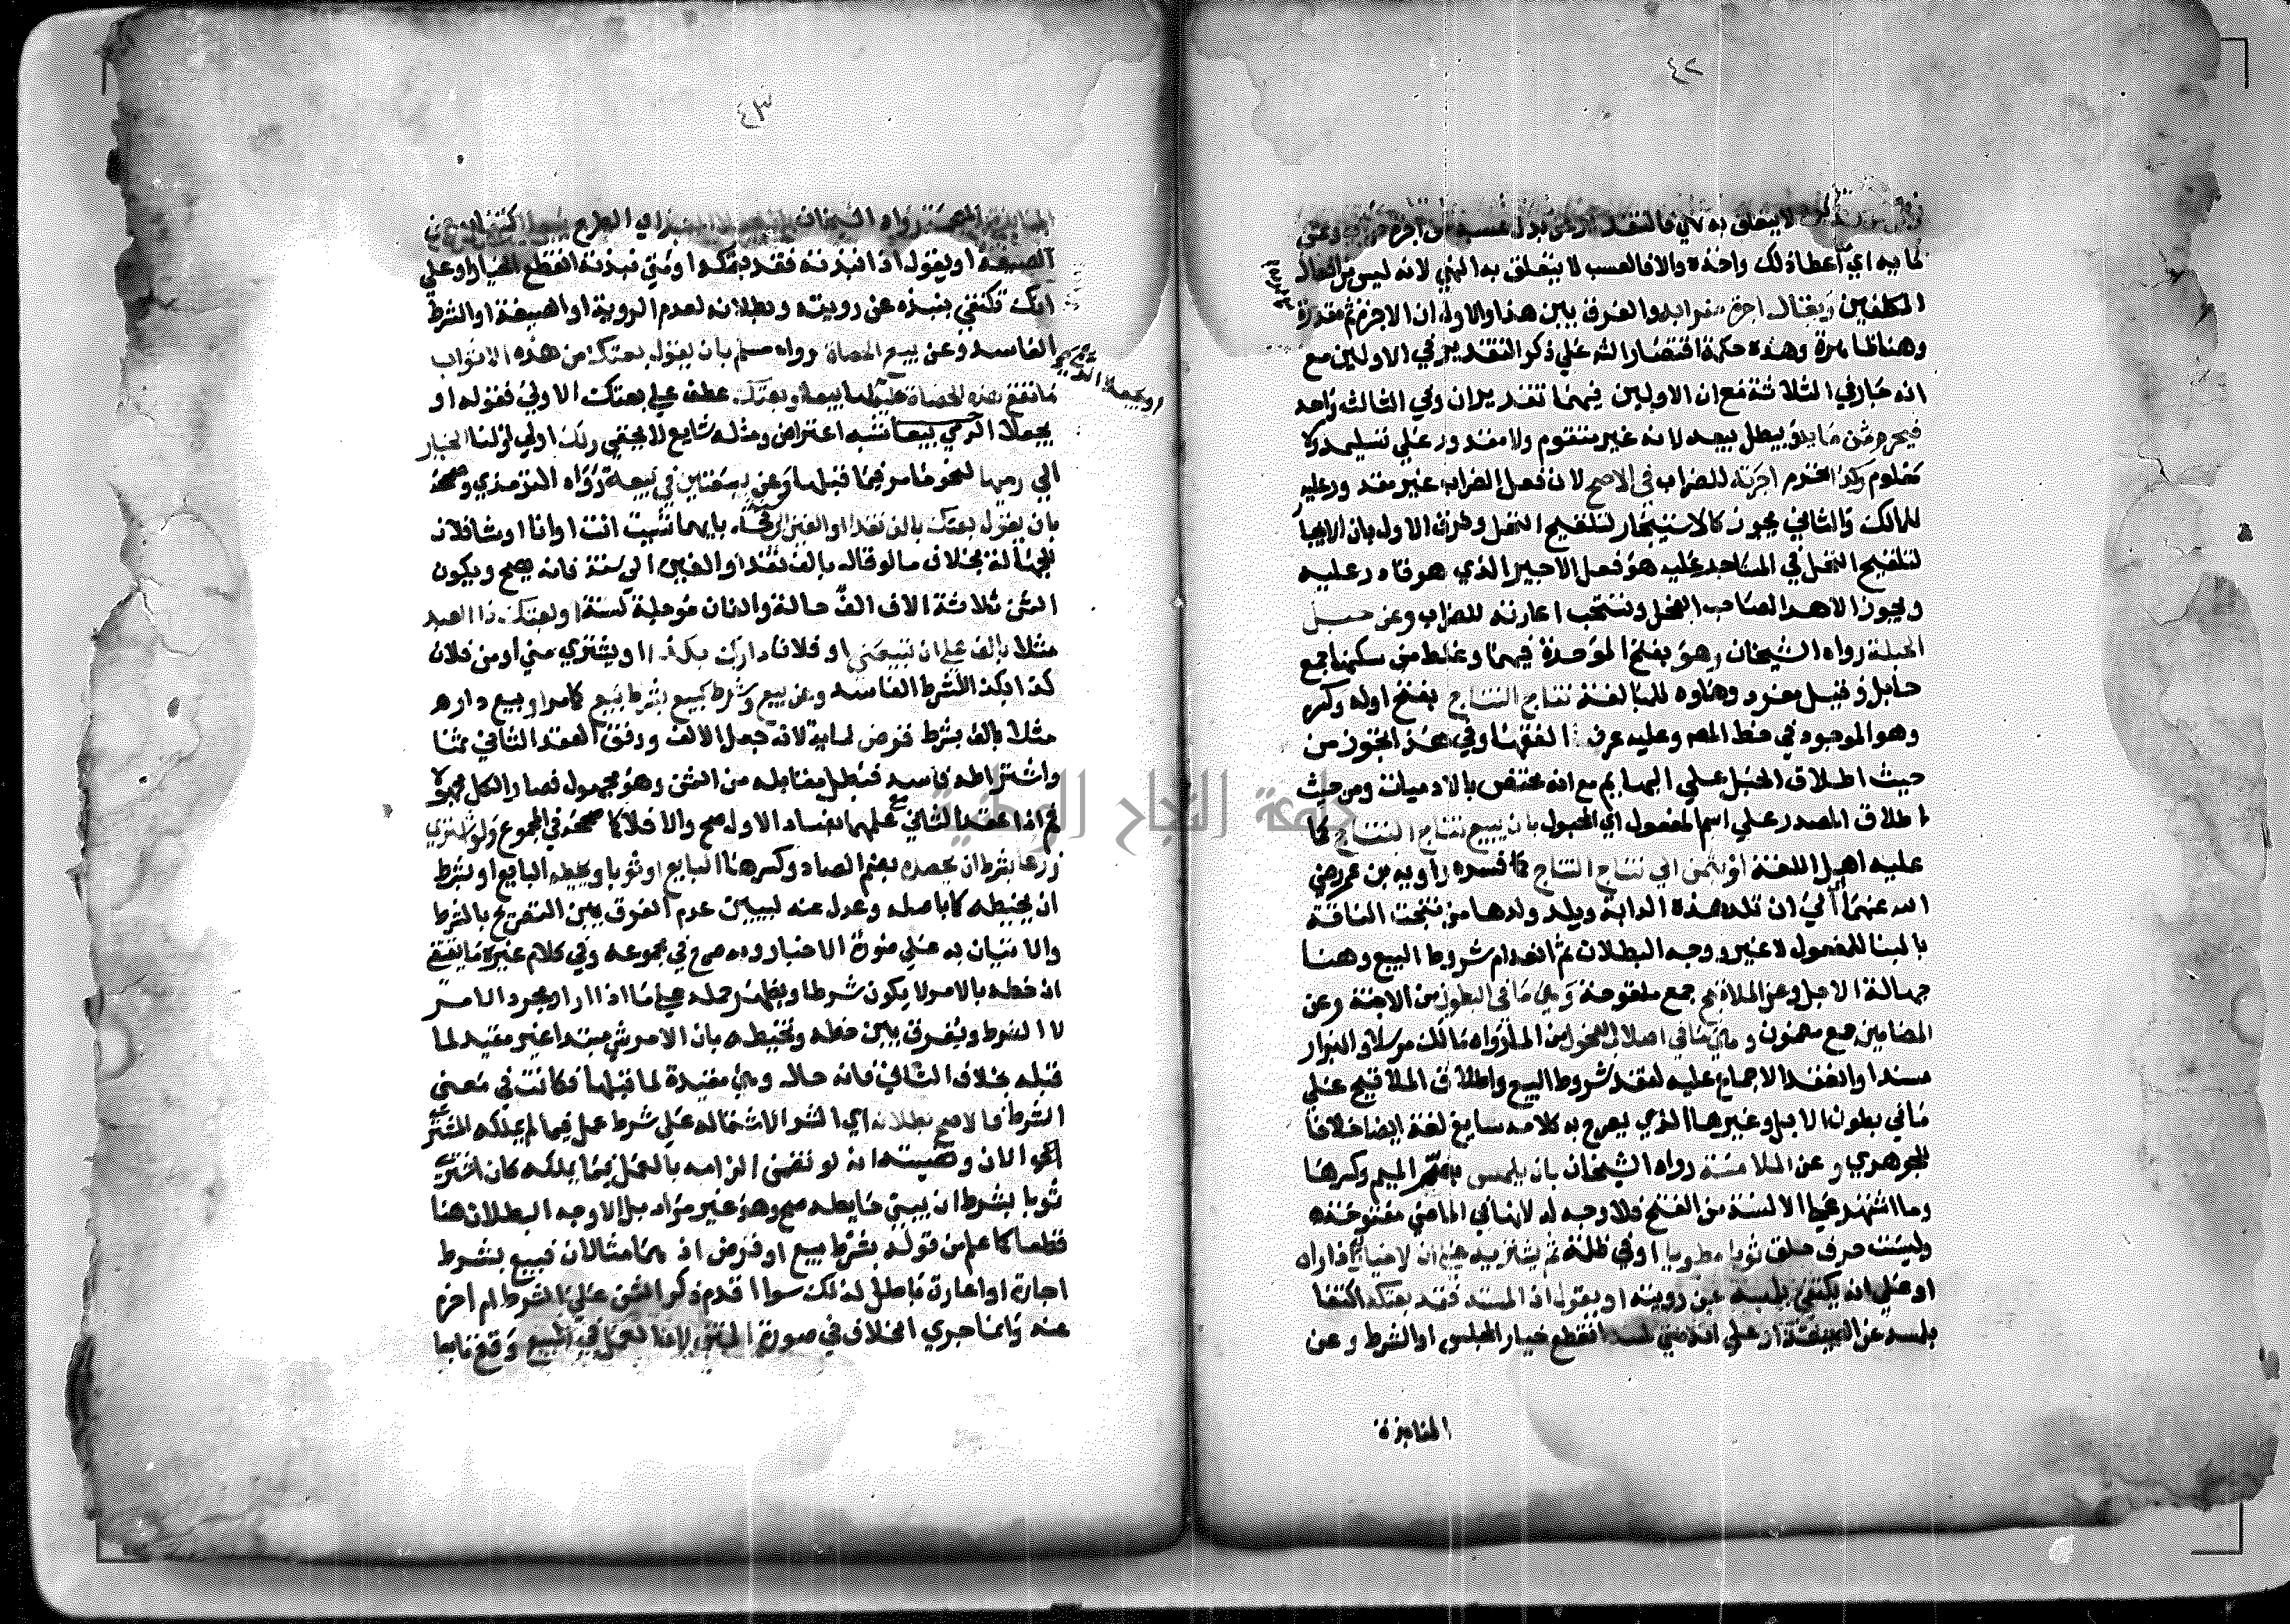 ٤٢
لا يتعلق به نهي فالتقدير عن بدل عسبه من اجرة
ثمنه اي اعطاء ذلك واخذه والا فالعسب لا يتعلق به النهي لانه ليس من افعال
المكلفين ويقال اجرة ضرابه والفرق بين هذا والاول ان الاجرة ثم مقدرة
وهنا ظاهرة وهذه حكمة اقتصار الش علي ذكر التقدير في الاولين مع
انه جار في الثلاثة مع ان الاولين فيهما تقديران وفي الثالث واحد
فيحرم ثمن مايه ويبطل بيعه لانه غير متقوم ولا مقدور علي تسليمه ولا
معلوم وكذا تحرم اجرته للضراب في الاصح لان فعل الضراب غير مقدور عليه
للمالك والثاني يجوز كالاستيجار لتلقيح النخل وفرق الاول بان الايجار
لتلقيح النخل في المستاجر عليه هو فعل الاجير الذي هو قادر عليه
ويجوز الاهدا لصاحب الفحل وتستحب اعارته للضراب وعن حبل
الحبلة رواه الشيخان وهو بفتح الموحدة فيهما وغلط من سكنها جمع
حابل وقيل مفرد وهاوه للمبالغة نتاج النتاج بفتح اوله وكسره
وهو الموجود في خط المص وعليه عرف الفقها وفي هذا تجوز من
حيث اطلاق الحبل علي البهايم مع انه مختص بالادميات ومن حيث
اطلاق المصدر علي اسم المفعول اي المحبول بان يبيع نتاج النتاج كما
عليه اهل اللغة او بثمن الي نتاج النتاج كما فسره راويه بن عمر رضي
الله عنهما اي الي ان تلد هذه الدابة ويلد ولدها من نتجت الناقة
بالبنا للمفعول لا غير ووجه البطلان ثم انعدام شروط البيع وهنا
جهالة الاجل وعن الملاقيح جمع ملقوحة وهي ما في البطون من الاجنة وعن
المضامين جمع مضمون وهي ما في اصلاب الفحول من الما رواه مالك مرسلا والبزار
مسندا وانعقد الاجماع عليه لفقد شروط البيع واطلاق الملاقيح علي
ما في بطون الابل وغيرها الذي يصرح به كلامه سايغ لغة ايضا خلافا
للجوهري وعن الملامسة رواه الشيخان بان يلمس بضم الميم وكسرها
وما اشتهر علي الالسنة من الفتح فلا وجه له لانها في الماضي مفتوحة
وليست حرف حلق ثوبا مطويا او في ظلمة ثم يشتريه علي ان لا خيار له اذا راه
او علي انه يكتفي بلمسه عن رويته او يقول اذا لمسته فقد بعتكه اكتفا
بلمسه عن الصيغة او علي انه متي لمسه انقطع خيار المجلس او الشرط وعن
المنابذة
٤٣
المنابذة بالمعجمة رواه الشيخان بان يجعلا النبذ اي الطرح بيعا اكتفا به عن
الصيغة او يقول اذا نبذته فقد بعتكه او متي نبذته انقطع الخيار او علي
انك تكتفي بنبذه عن رويته وبطلانه لعدم الروية او الصيغة او الشرط
الفاسد وعن بيع الحصاة رواه مسلم بان يقول بعتك من هذه الاثواب
ما تقع هذه الحصاة عليه او بعتك عطف علي بعتك الاولي فقوله او
يجعلا الرمي بيعا تنبه اعتراض ومثله شايع لا يخفي ولك اولي لولنا الخيار
الي رميها لنحو ما مر فيما قبلها وعن بيعتين في بيعة رواه الترمذي وصححه
بان يقول بعتك بالف نقدا او الفين الي سنة فخذ بايهما شيت انت او انا او شا فلان
للجهالة بخلاف ما لو قال بالف نقدا والفين الي سنة فانه يصح ويكون
الثمن ثلاثة الاف الف حالة والفان موجلة لسنة او بعتك ذا العبد
مثلا بالف علي ان تبيعني او فلانا دارك بكذا او يشتري مني او من فلان
كذا بكذا للشرط الفاسد وعن بيع وشرط كبيع بشرط بيع كما مر او بيع داره
مثلا بالف بشرط قرض لماية لانه جعل الالف ورفق العقد الثاني ثمنا
واشتراطه فاسد فبطل مقابله من الثمن وهو مجهول فصار الكل مجهولا
ثم اذا عقدا الثاني مع علمهما بفساد الاول صح والا فلا كما صححه في المجموع ولو اشتري
زرعا بشرط ان يحصده بضم الصاد وكسرها البايع او ثوبا ويخيطه البايع او بشرط
ان يخيطه كما باصله وعدل عنه ليبين عدم الفرق بين التصريح بالشرط
والاتيان به علي صورة الاخبار وبه صرح في مجموعه وفي كلام غيره ما يقتضي
ان خطه بالامر لا يكون شرطا ويظهر حمله علي ما اذا اراد مجرد الامر
لا الشرط ويفرق بين خطه وتخيطه بان الامر شي مبتدا غير مقيد لما
قبله بخلاف الثاني فانه حال وهي مقيدة لما قبلها فكانت في معني
الشرط فالاصح بطلانه اي الشرا لاشتماله علي شرط عمل فيما لم يملكه المشتري
الي الان وقضيته انه لو تضمن الزامه بالعمل فيما يملكه كان اشتري
ثوبا بشرط ان يبني حايطه صح وهو غير مراد بل الاوجه البطلان هنا
قطعا كما علم من قوله بشرط بيع او قرض اذ هما مثالان فبيع بشرط
اجارة او اعارة باطل لذلك سوا اقدم ذكر الثمن علي الشرط ام اخره
عنه وانما جري الخلاف في صورة المتن لان العمل في المبيع وقع تابعا
جامعة النجاح الوطنية